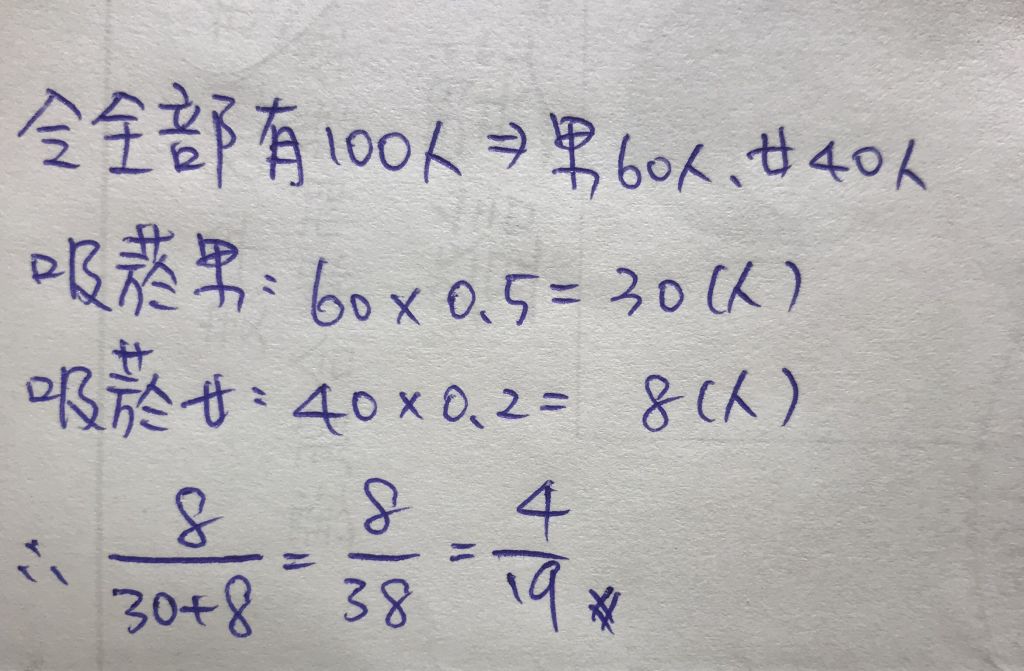 令全部有100人⇒男60人、女40人
吸菸男：60×0.5=30(人)
吸菸女：40×0.2= 8(人)
∴ 8/(30+8) = 8/38 = 4/19